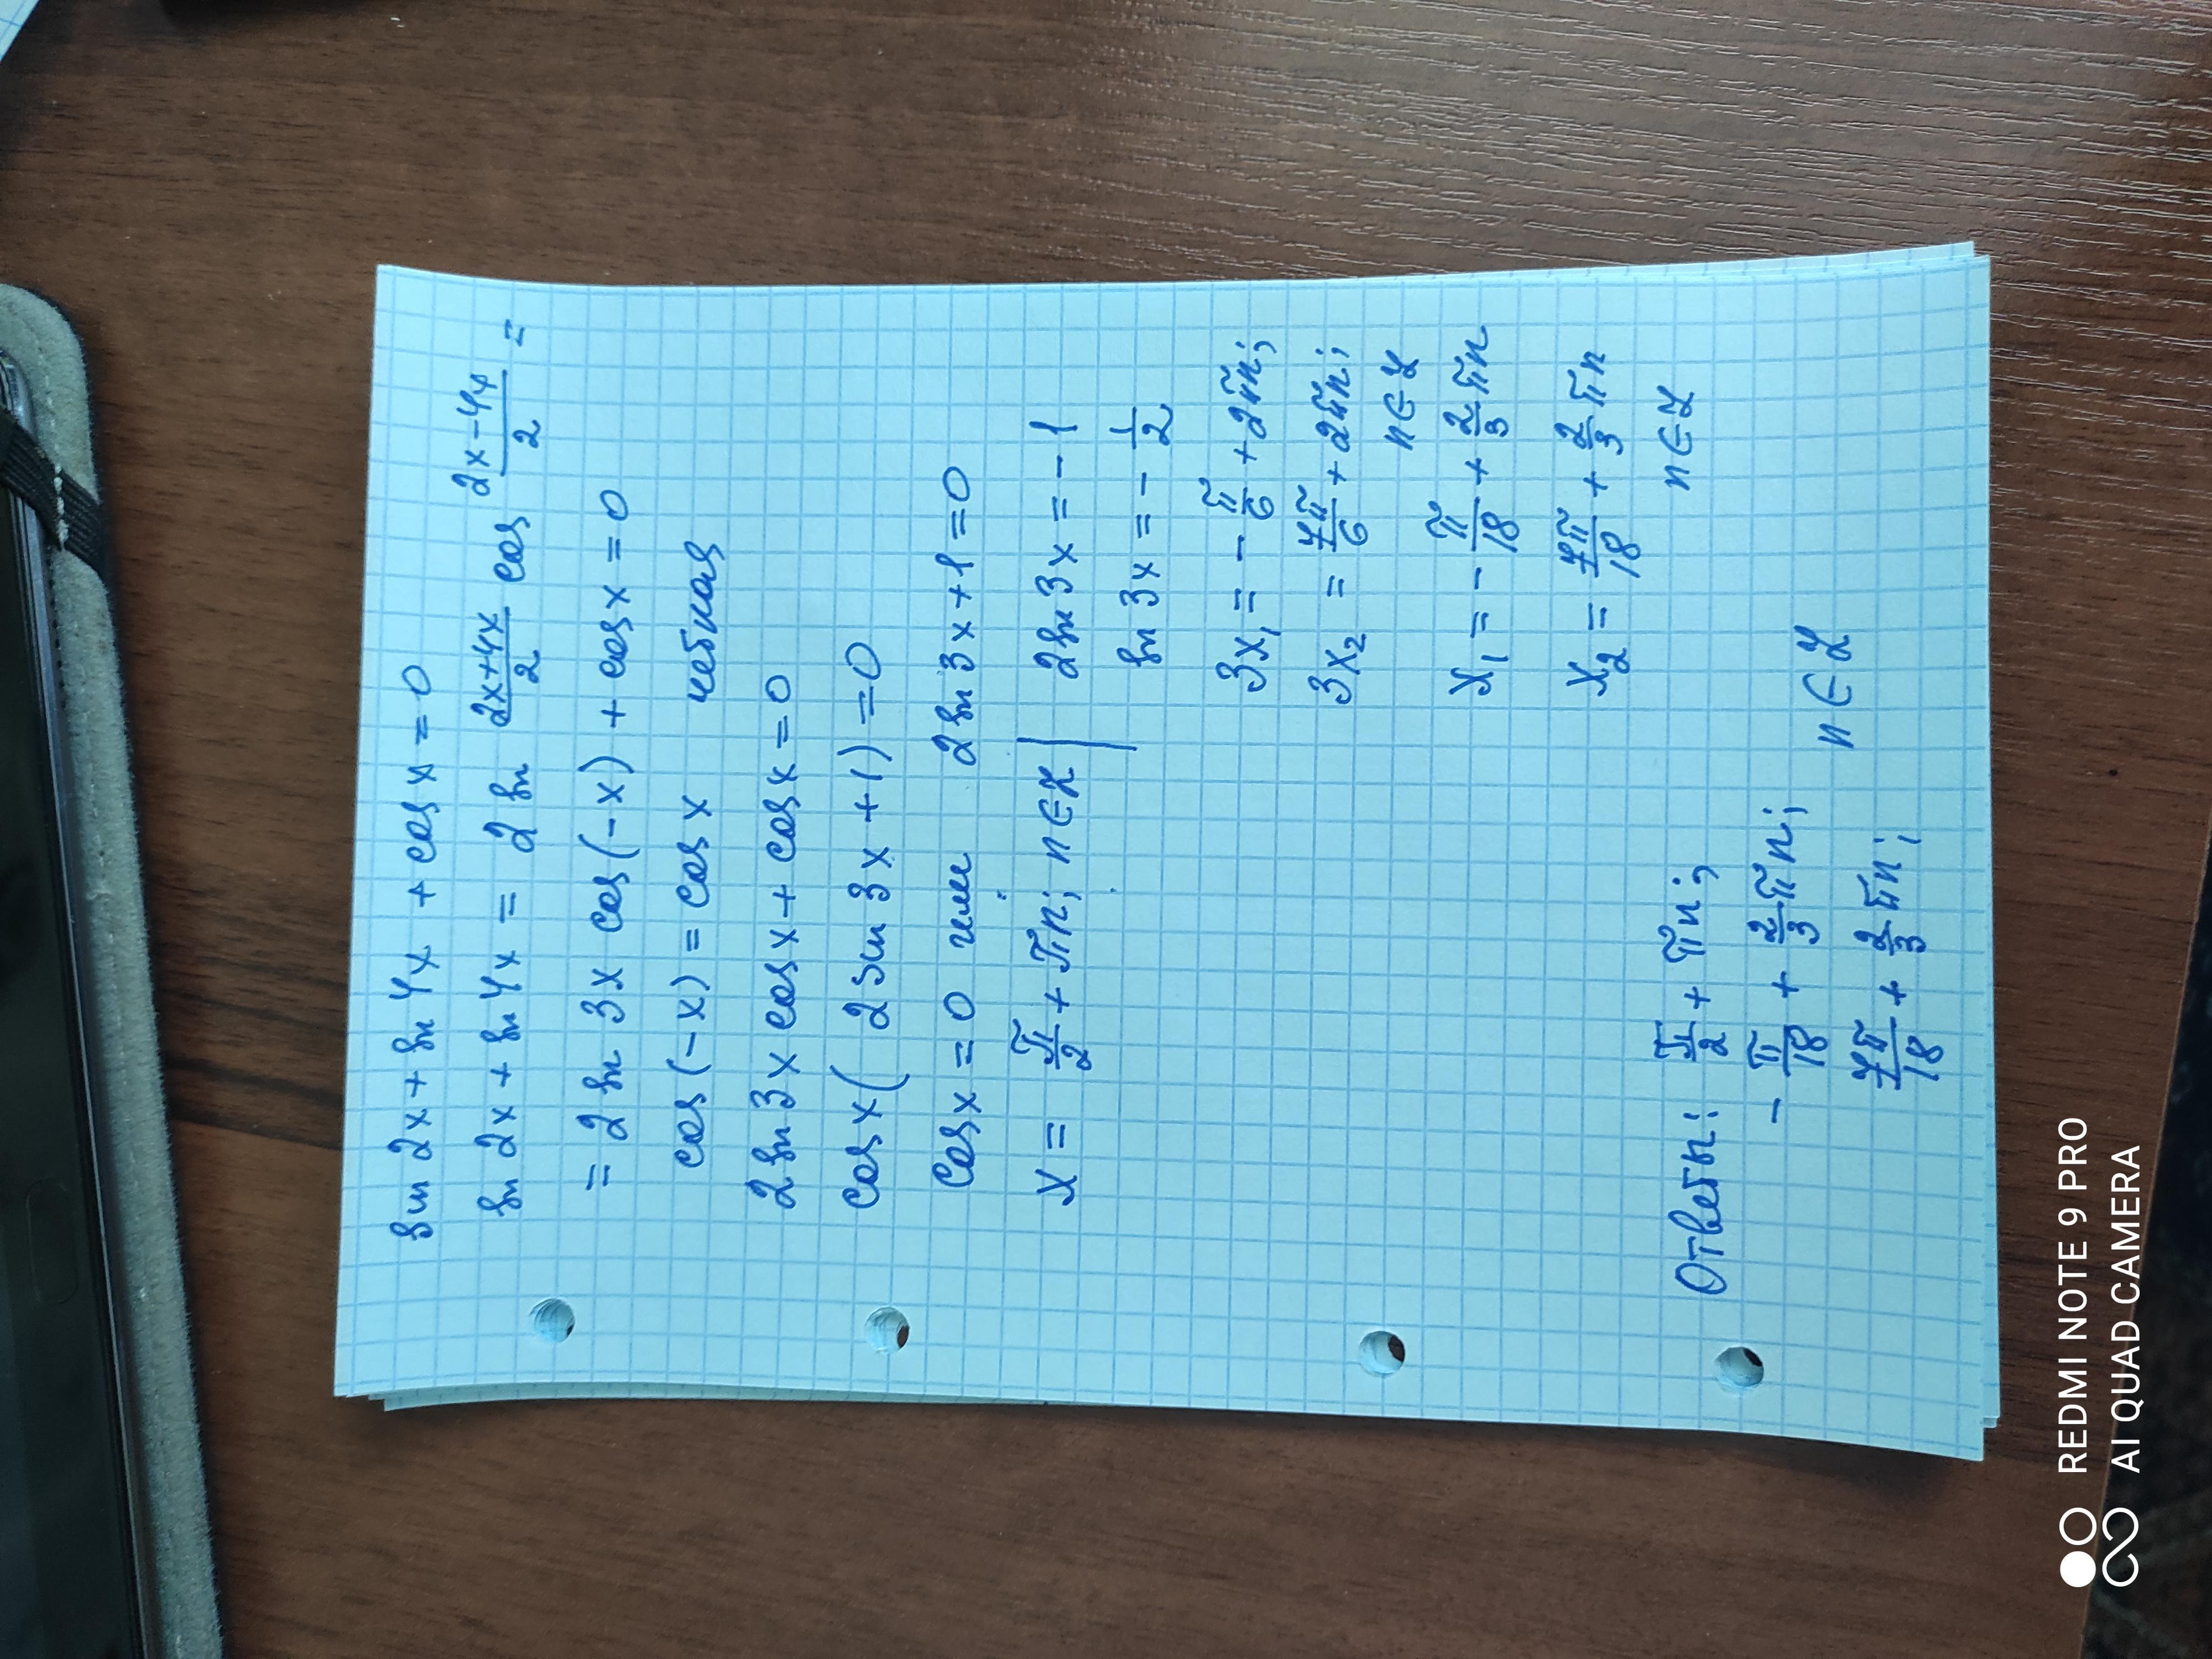 sin 2x + sin 4x + cos x = 0
sin 2x + sin 4x = 2 sin \frac{2x+4x}{2} cos \frac{2x-4x}{2} =
= 2 sin 3x cos(-x) + cos x = 0
cos(-x) = cos x четная
2 sin 3x cos x + cos x = 0
cos x ( 2 sin 3x + 1) = 0
cos x = 0 или 2 sin 3x + 1 = 0
x = \frac{π}{2} + πn; n ∈ Z | 2 sin 3x = -1
sin 3x = - \frac{1}{2}
3x₁ = - \frac{π}{6} + 2πn;
3x₂ = \frac{7π}{6} + 2πn;
n ∈ Z
x₁ = - \frac{π}{18} + \frac{2}{3} πn
x₂ = \frac{7π}{18} + \frac{2}{3} πn
n ∈ Z
Ответы: \frac{π}{2} + πn;
- \frac{π}{18} + \frac{2}{3} πn; n ∈ Z
\frac{7π}{18} + \frac{2}{3} πn;
REDMI NOTE 9 PRO
AI QUAD CAMERA